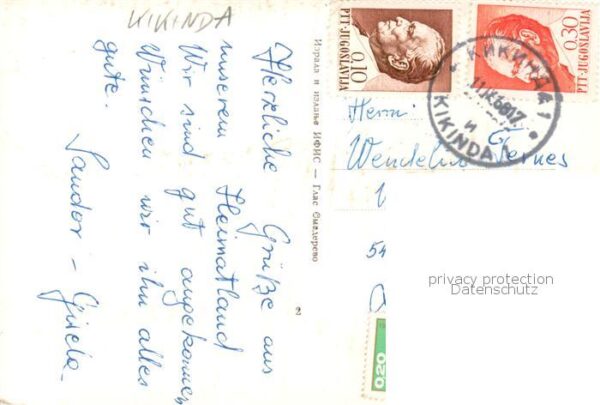 KIKINDA
Herzliche Grüße aus
unserem Heimatland
Wir sind gut angekommen
Wünschen wir ihn alles
gute.
Sandor - Gisela
Израда и издање ИФИС — Глас Смедерево
2
0.10
PTT-JUGOSLAVIJA
0.30
PTT-JUGOSLAVIJA
КИКИНДА 1
KIKINDA 1
Herrn
Wendelin
1
54
privacy protection
Datenschutz
0.50